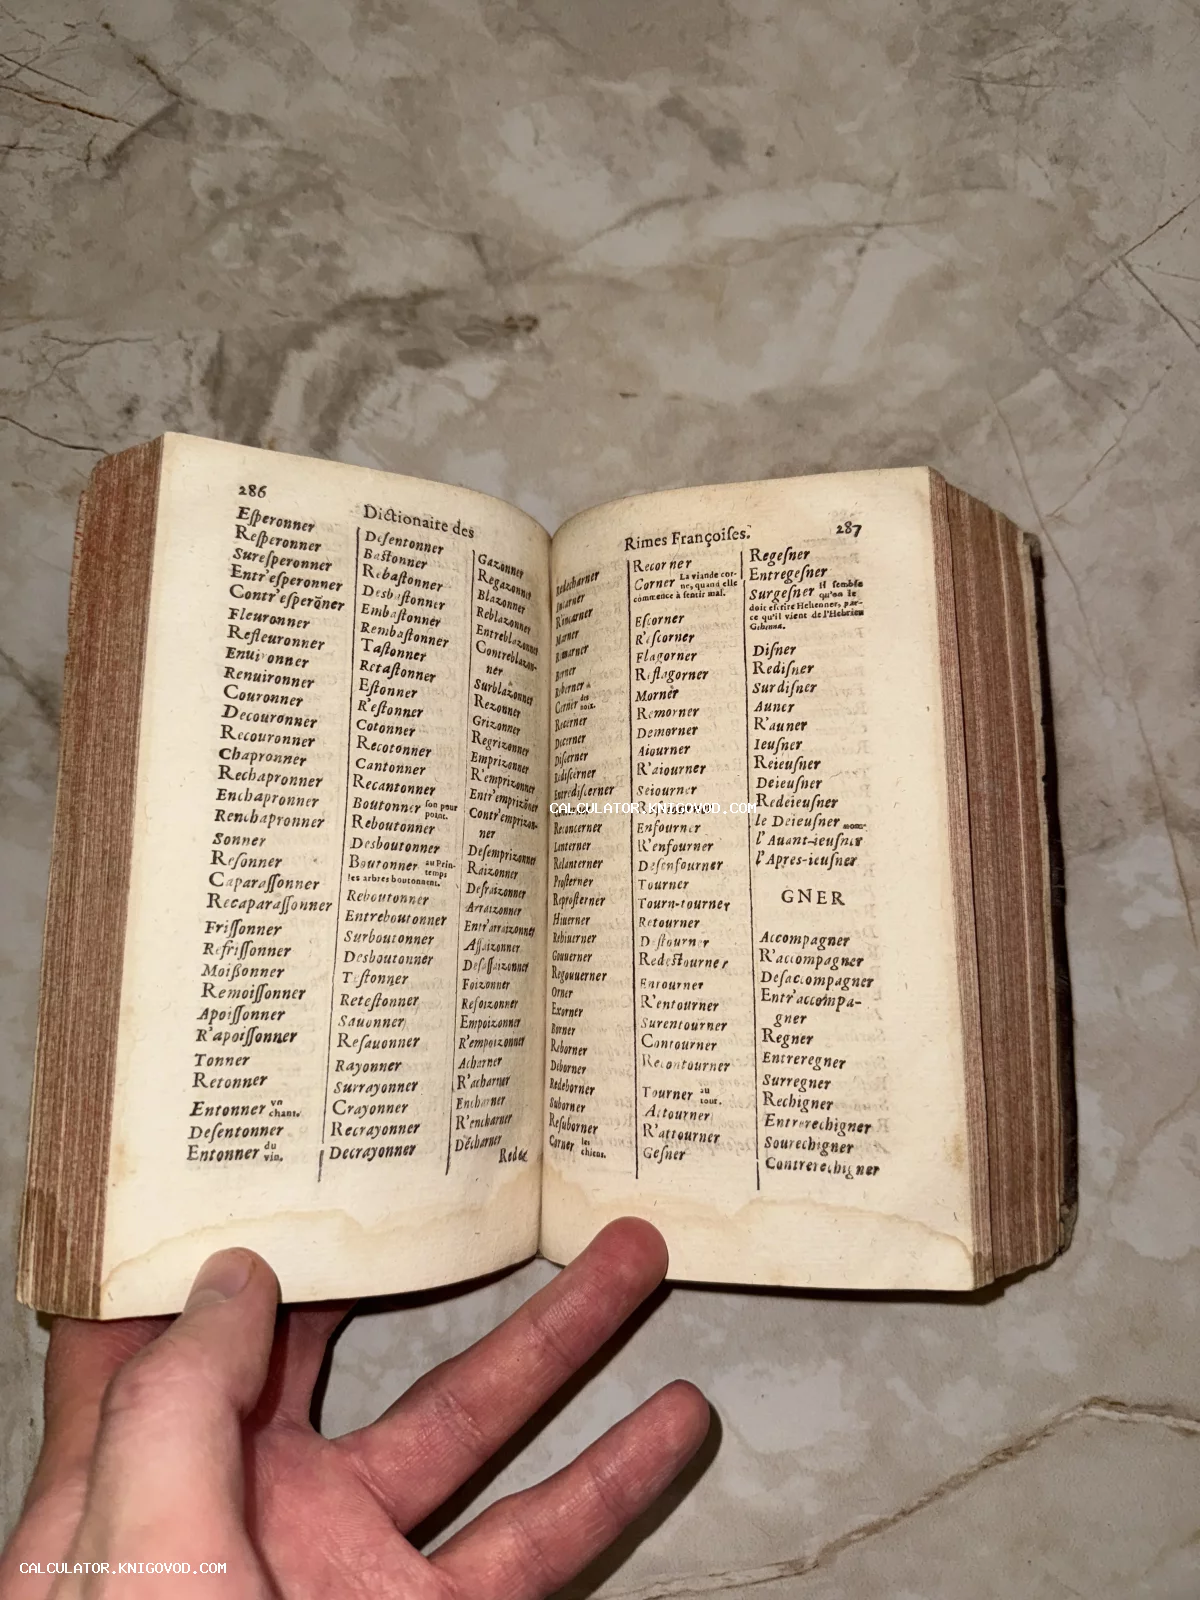 286
Dictionaire des
Eſperonner
Reſperonner
Sureſperonner
Entr'eſperonner
Contr'eſperõner
Fleuronner
Refleuronner
Enuironner
Renuironner
Couronner
Decouronner
Recouronner
Chapronner
Rechapronner
Enchapronner
Renchapronner
Sonner
Reſonner
Caparaſſonner
Recaparaſſonner
Friſſonner
Refriſſonner
Moißonner
Remoiſſonner
Apoiſſonner
R'apoiſſonner
Tonner
Retonner
Entonner vn chant.
Deſentonner
Entonner du vin.
Deſentonner
Baſtonner
Rebaſtonner
Desbaſtonner
Embaſtonner
Rembaſtonner
Taſtonner
Retaſtonner
Eſtonner
R'eſtonner
Cotonner
Recotonner
Cantonner
Recantonner
Boutonner ſon pour
point.
Reboutonner
Desboutonner
Boutonner au Prin-
temps
les arbres boutonnent.
Reboutonner
Entreboutonner
Surboutonner
Desboutonner
Teſtonner
Reteſtonner
Sauonner
Reſauonner
Rayonner
Surrayonner
Crayonner
Recrayonner
Decrayonner
Gazonner
Regazonner
Blazonner
Reblazonner
Entreblazonner
Contreblazon-
ner
Surblazonner
Rezonner
Grizonner
Regrizonner
Emprizonner
R'emprizonner
Entr'emprizõner
Contr'emprizon-
ner
Deſemprizonner
Raizonner
Deſraizonner
Arraizonner
Entr'arraizonner
Aſſaizonner
Deſaſſaizonner
Foizonner
Refoizonner
Empoizonner
R'empoizonner
Acharner
R'acharner
Encharner
R'encharner
Décharner
Redé
Rimes Françoiſes.
287
Redecharner
Incarner
Rincarner
Marner
Remarner
Berner
Reberner
Cerner des
noix.
Recerner
Decerner
Diſcerner
Rediſcerner
Entrediſcerner
Reconcerner
Lanterner
Relanterner
Proſterner
Reproſterner
Hiuerner
Rehiuerner
Gouuerner
Regouuerner
Orner
Exorner
Borner
Reborner
Diborner
Redeborner
Suborner
Reſuborner
Corner les
chiens.
Recorner
Corner La viande cor-
ne, quand elle
commence à ſentir mal.
Eſcorner
R'eſcorner
Flagorner
Reflagorner
Morner
Remorner
Demorner
Aiourner
R'aiourner
Seiourner
Enfourner
R'enfourner
Deſenfourner
Tourner
Tourn-tourner
Retourner
Deſtourner
Redeſtourner
Entourner
R'entourner
Surentourner
Contourner
Recontourner
Tourner au
tout.
Attourner
R'attourner
Geſner
Regeſner
Entregeſner
Surgeſner Il ſemble
qu'on le
doit eſcrire Hehenner, par-
ce qu'il vient de l'Hebrieu
Gehinna.
Diſner
Rediſner
Surdiſner
Auner
R'auner
Ieuſner
Reieuſner
Deieuſner
Redeieuſner
le Deieuſner
l'Auant-ieuſner
l'Apres-ieuſner
GNER
Accompagner
R'accompagner
Deſaccompagner
Entr'accompa-
gner
Regner
Entreregner
Surregner
Rechigner
Entrerechigner
Sourechigner
Contrerechigner
CALCULATOR.KNIGOVOD.COM
CALCULATOR.KNIGOVOD.COM